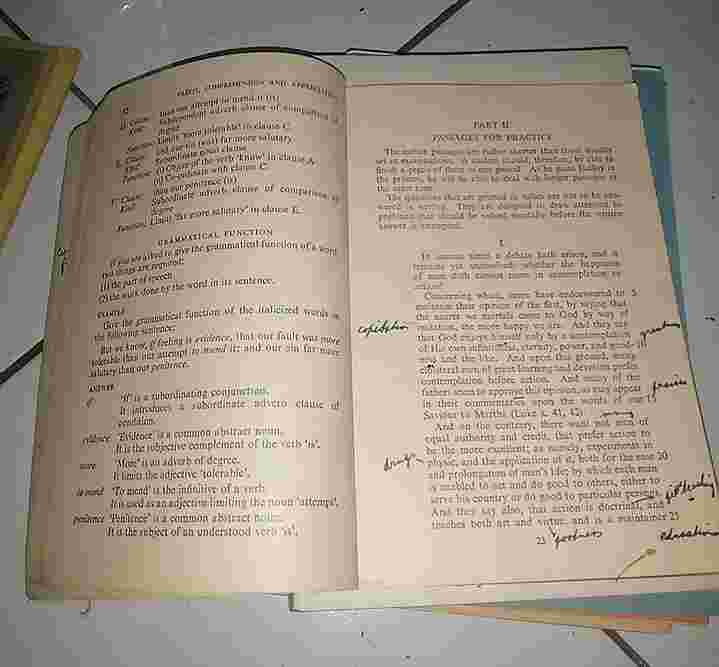 22
PARSING, COMPREHENSION AND APPRECIATION
than our attempt to mend it (is)
D. Clause:
Kind: Subordinate adverb clause of comparison of
degree
Function: Limits 'more tolerable' in clause C.
E. Clause: and our sin (was) far more salutary.
Kind: Subordinate noun clause
Function: (i) Object of the verb 'know' in clause A.
(ii) Co-ordinate with clause C.
F. Clause: than our penitence (is)
Kind: Subordinate adverb clause of comparison of
degree
Function: Limits 'far more salutary' in clause E.
GRAMMATICAL FUNCTION
If you are asked to give the grammatical function of a word
two things are required:
(1) the part of speech
(2) the work done by the word in its sentence.
EXAMPLE
Give the grammatical function of the italicized words in
the following sentence:
But we know, if feeling is evidence, that our fault was more
tolerable than our attempt to mend it; and our sin far more
salutary than our penitence.
ANSWER
if 'If' is a subordinating conjunction.
It introduces a subordinate adverb clause of
condition.
evidence 'Evidence' is a common abstract noun.
It is the subjective complement of the verb 'is'.
more 'More' is an adverb of degree.
It limits the adjective 'tolerable'.
to mend 'To mend' is the infinitive of a verb.
It is used as an adjective limiting the noun 'attempt'.
penitence 'Penitence' is a common abstract noun.
It is the subject of an understood verb 'is'.
PART II
PASSAGES FOR PRACTICE
The earlier passages are rather shorter than those usually
set at examinations. A student should, therefore, be able to
finish a couple of them in one period. As he gains facility in
the process, he will be able to deal with longer passages in
the same time.
The questions that are printed in italics are not to be ans-
wered in writing. They are designed to draw attention to
problems that should be solved mentally before the written
answer is attempted.
1
In ancient times a debate hath arisen, and it
remains yet unresolved: whether the happiness
of man doth consist more in contemplation or
action?
Concerning which, some have endeavoured to 5
maintain their opinion of the first, by saying that
the nearer we mortals come to God by way of
imitation, the more happy we are. And they say
that God enjoys himself only by a contemplation
of His own infiniteness, eternity, power, and good- 10
ness and the like. And upon this ground, many
cloisteral men of great learning and devotion prefer
contemplation before action. And many of the
fathers seem to approve this opinion, as may appear
in their commentaries upon the words of our 15
Saviour to Martha (Luke x. 41, 42)
And on the contrary, there want not men of
equal authority and credit, that prefer action to
be the more excellent; as namely, experiments in
physic, and the application of it, both for the ease 20
and prolongation of man's life; by which each man
is enabled to act and do good to others, either to
serve his country or do good to particular persons.
And they say also, that action is doctrinal, and
teaches both art and virtue, and is a maintainer 25
23 goodness
education